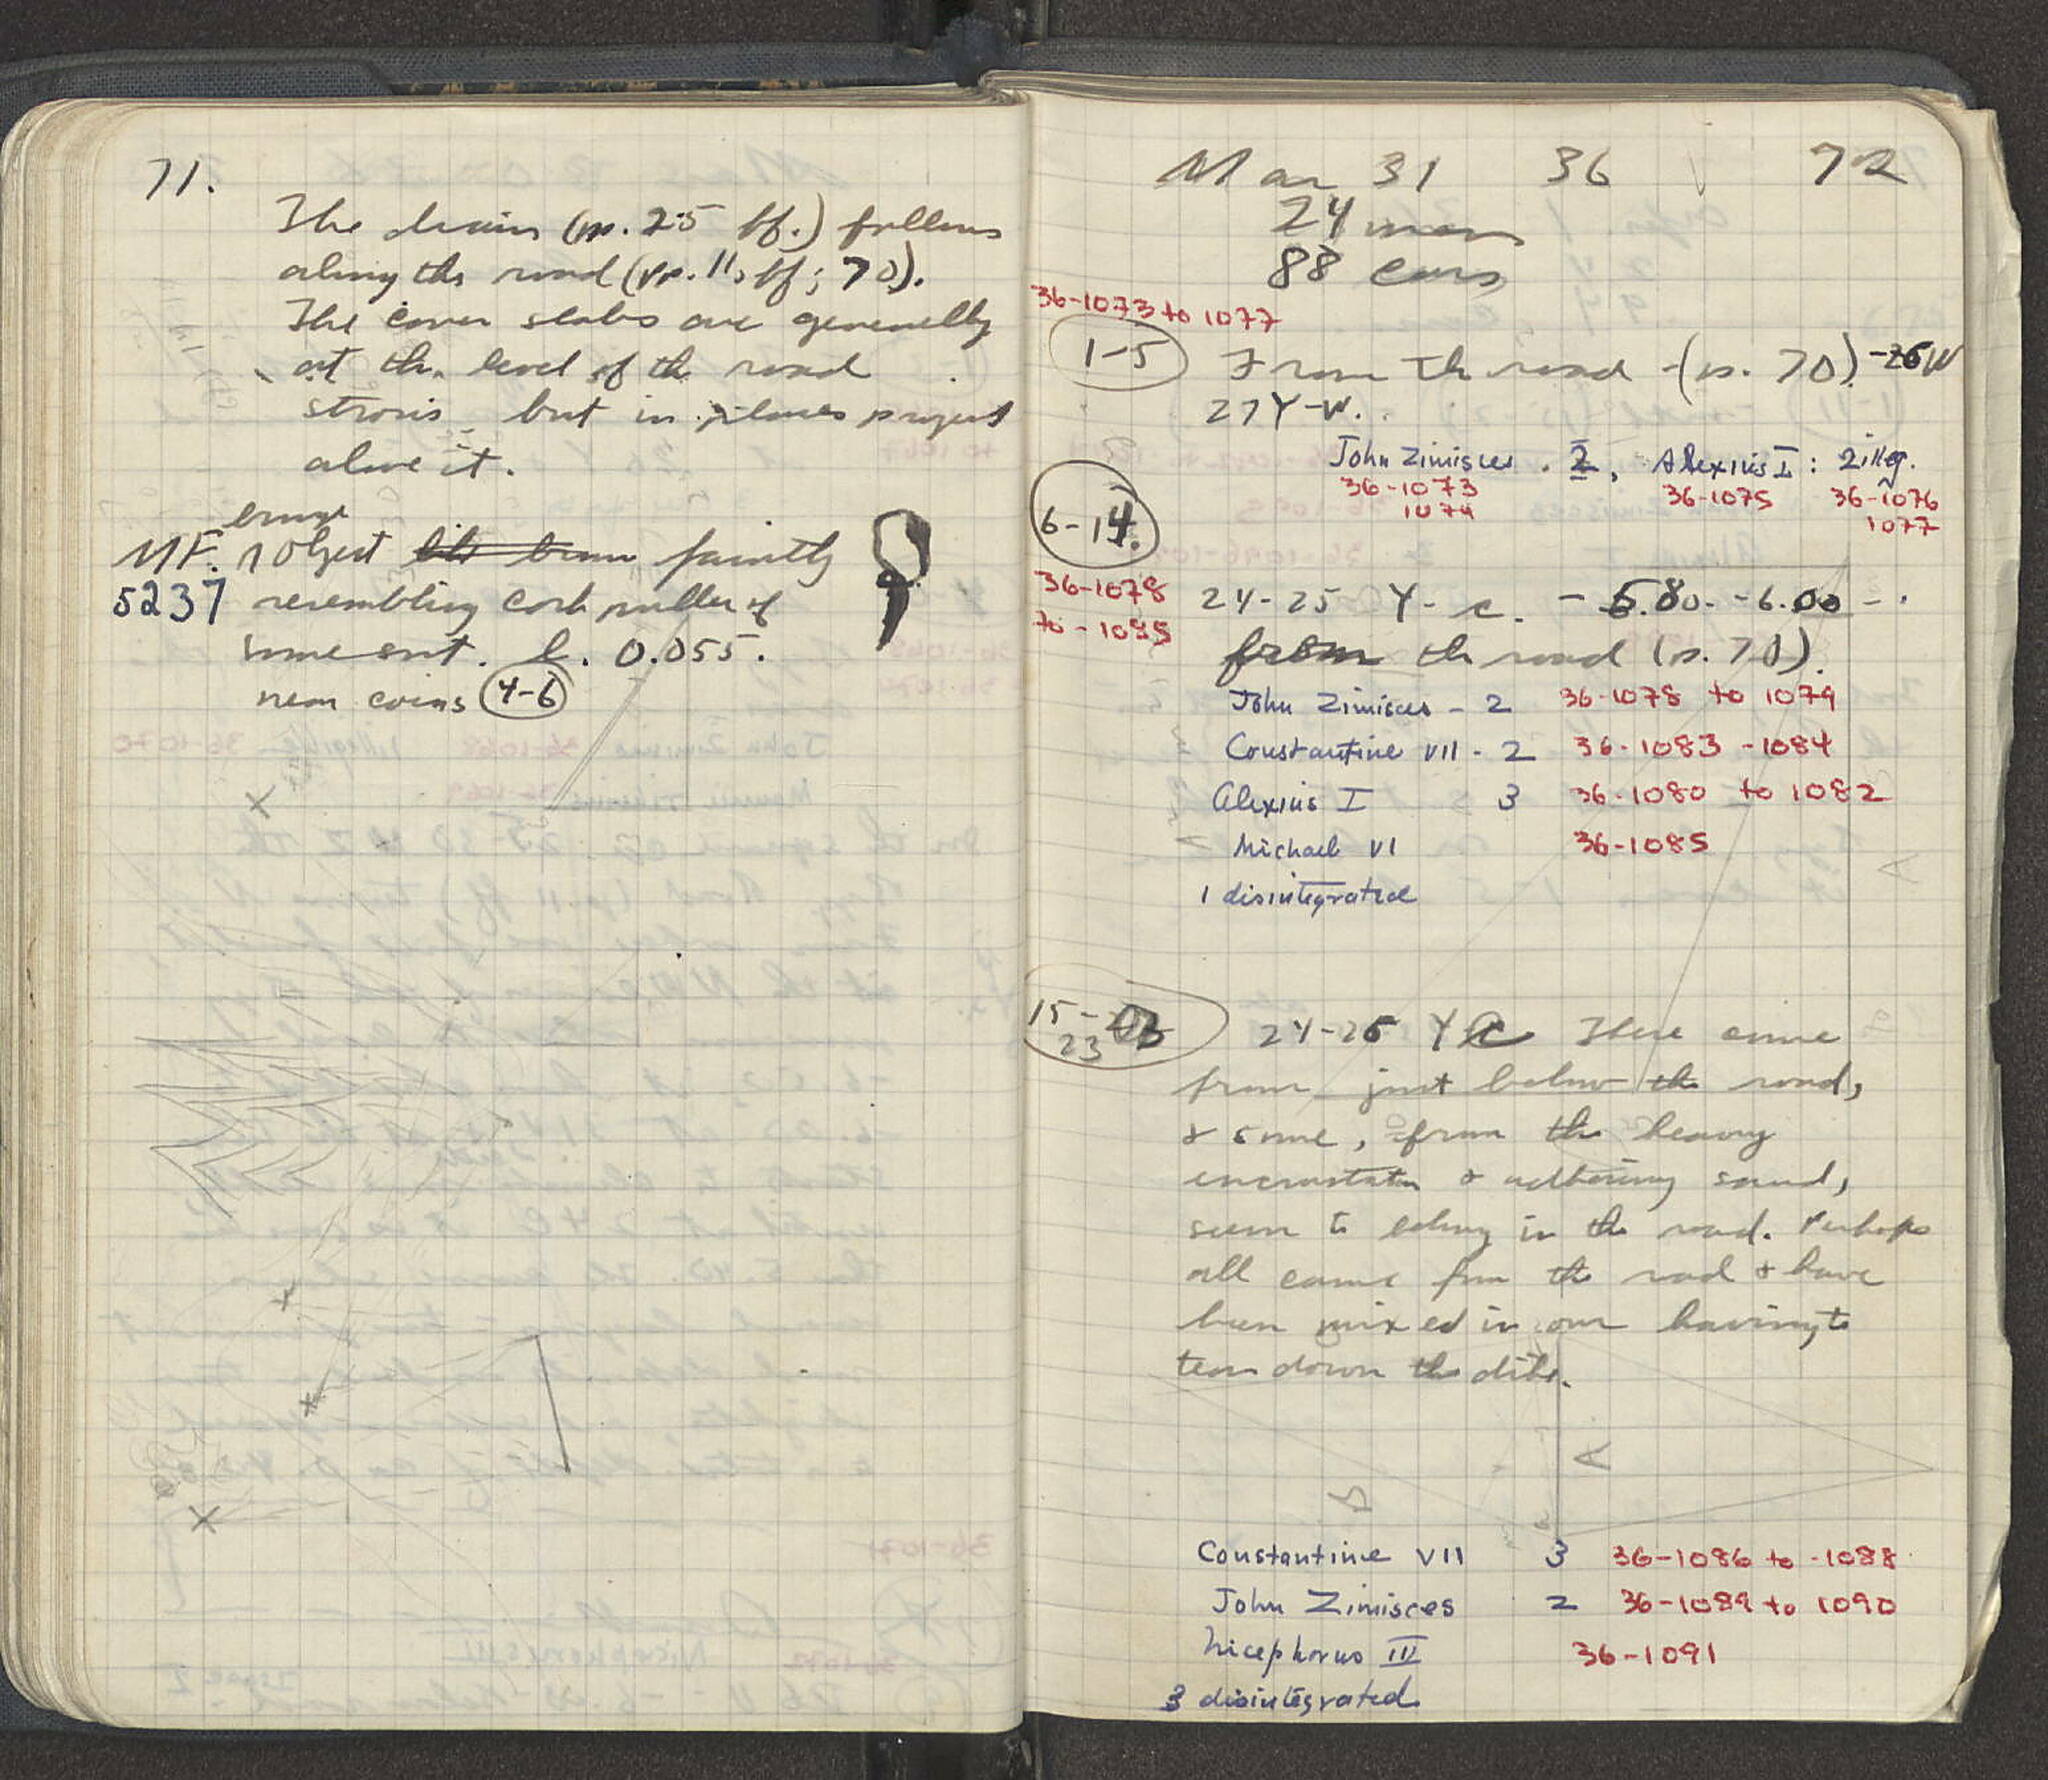 71.
The drain (pp. 25 ff.) follows
along the road (pp. 11, ff; 70).
The cover slabs are generally
at the level of the road
strosis but in places project
above it.
bronze
MF. 1 Object faintly
5237 resembling cork puller of
some sort. l. 0.055.
near coins 4-6
Mar 31 36 72
24 men
88 cars
36-1073 to 1077
1-5 From the road (p. 70).
27 Y-W.
John Zimisces . 2, Alexius I : 2 illeg.
36-1073 36-1075 36-1076
1074 1077
6-14.
36-1078 24-25 Y- c. -5.80 - -6.00 -
to -1085 from the road (p. 70).
John Zimisces - 2 36-1078 to 1079
Constantine VII - 2 36-1083 -1084
Alexius I 3 36-1080 to 1082
Michael VI 36-1085
1 disintegrated
15-
23 24-25 Y These came
from just below the road,
& some, from the heavy
encrustation & adhering sand,
seem to belong in the road. Perhaps
all came from the road & have
been mixed in our having to
tear down the dike.
Constantine VII 3 36-1086 to -1088
John Zimisces 2 36-1089 to 1090
Nicephorus III 36-1091
3 disintegrated